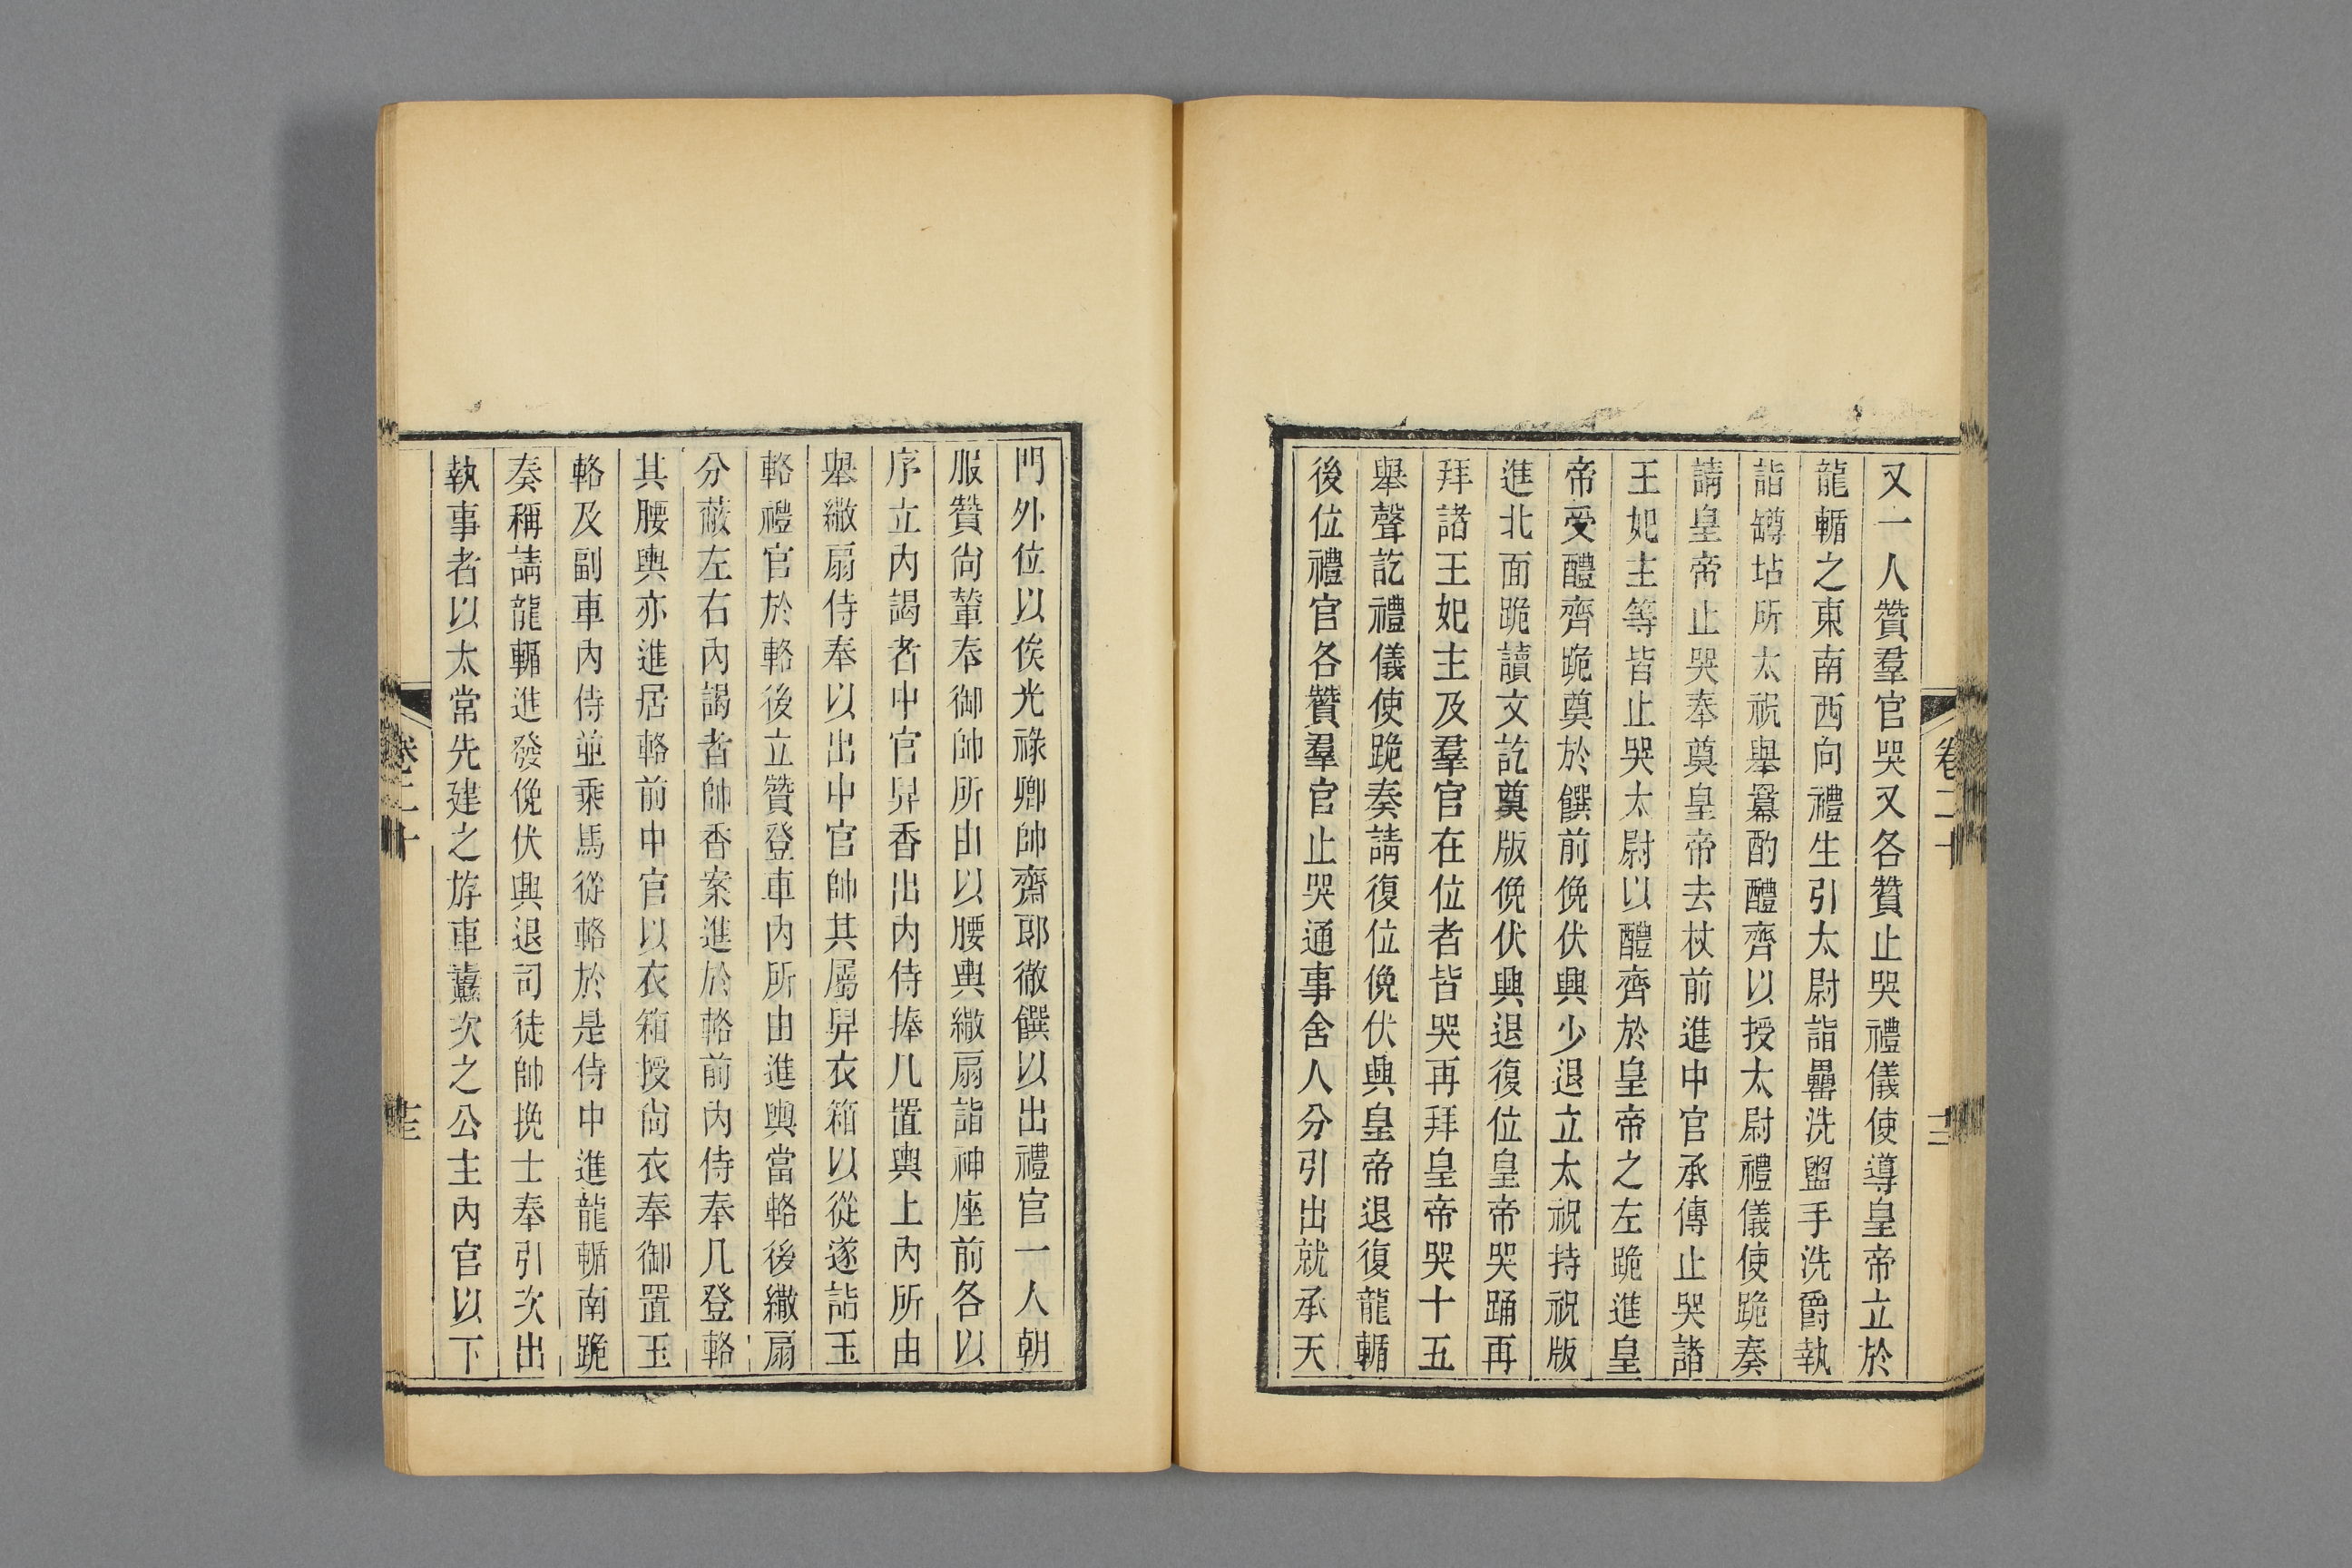 又一人贊羣官哭又各贊止哭禮儀使導皇帝立於
龍輴之東南西向禮生引太尉詣罍洗盥手洗爵執
詣罇坫所太祝舉羃酌醴齊以授太尉禮儀使跪奏
請皇帝止哭奉奠皇帝去杖前進中官承傳止哭諸
王妃主等皆止哭太尉以醴齊於皇帝之左跪進皇
帝受醴齊跪奠於饌前俛伏興少退立太祝持祝版
進北面跪讀文訖奠版俛伏興退復位皇帝哭踊再
拜諸王妃主及羣官在位者皆哭再拜皇帝哭十五
舉聲訖禮儀使跪奏請復位俛伏興皇帝退復龍輴
後位禮官各贊羣官止哭通事舍人分引出就承天
卷二十
十二
門外位以俟光祿卿帥齋郎徹饌以出禮官一人朝
服贊尙輦奉御帥所由以腰輿繖扇詣神座前各以
序立內謁者中官舁香出內侍捧几置輿上內所由
舉繖扇侍奉以出中官帥其屬舁衣箱以從遂詣玉
輅禮官於輅後立贊登車內所由進輿當輅後繖扇
分蔽左右內謁者帥香案進於輅前內侍奉几登輅
其腰輿亦進居輅前中官以衣箱授尙衣奉御置玉
輅及副車內侍並乘馬從輅於是侍中進龍輴南跪
奏稱請龍輴進發俛伏興退司徒帥挽士奉引次出
執事者以太常先建之斿車纛次之公主內官以下
卷二十
十三